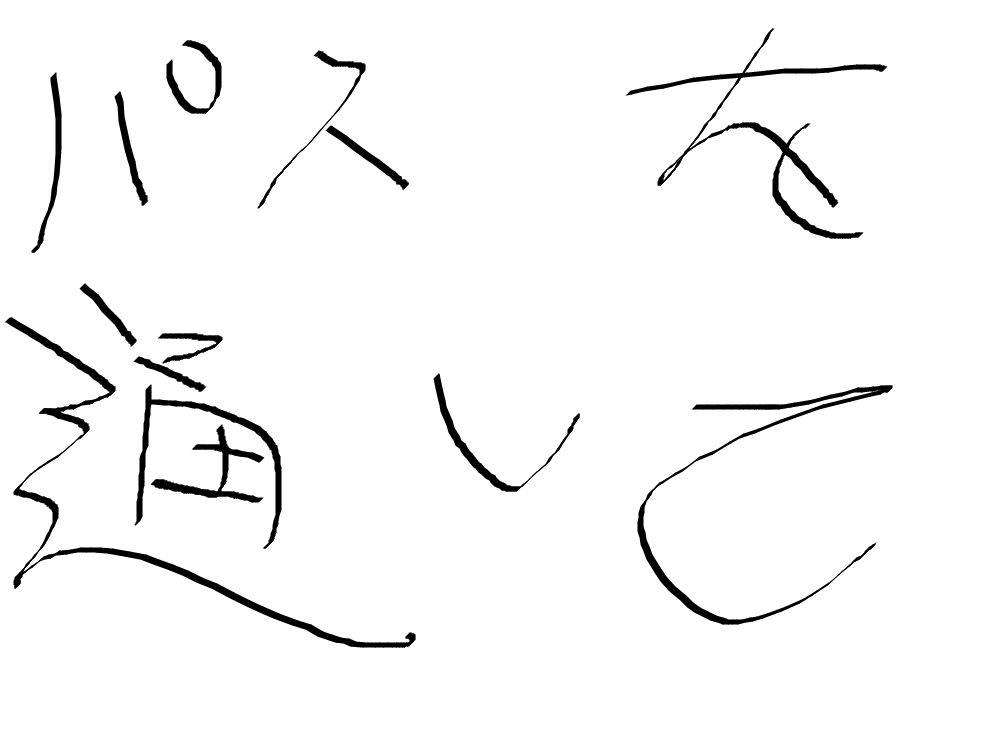 パスを
通いて